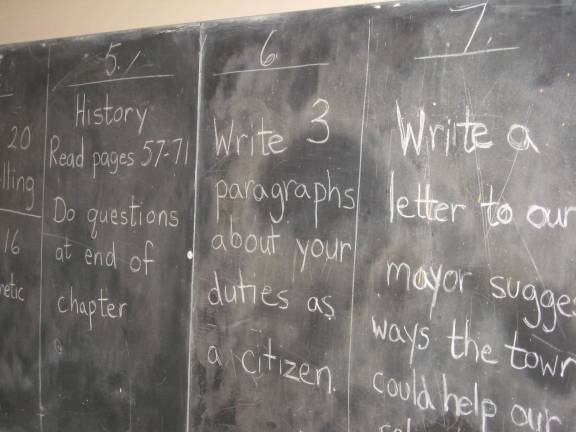 20
lling
16
netic
5.
History
Read pages 57-71
Do questions
at end of
chapter
6
Write 3
paragraphs
about your
duties as
a citizen.
7.
Write a
letter to our
mayor sugges
ways the town
could help our